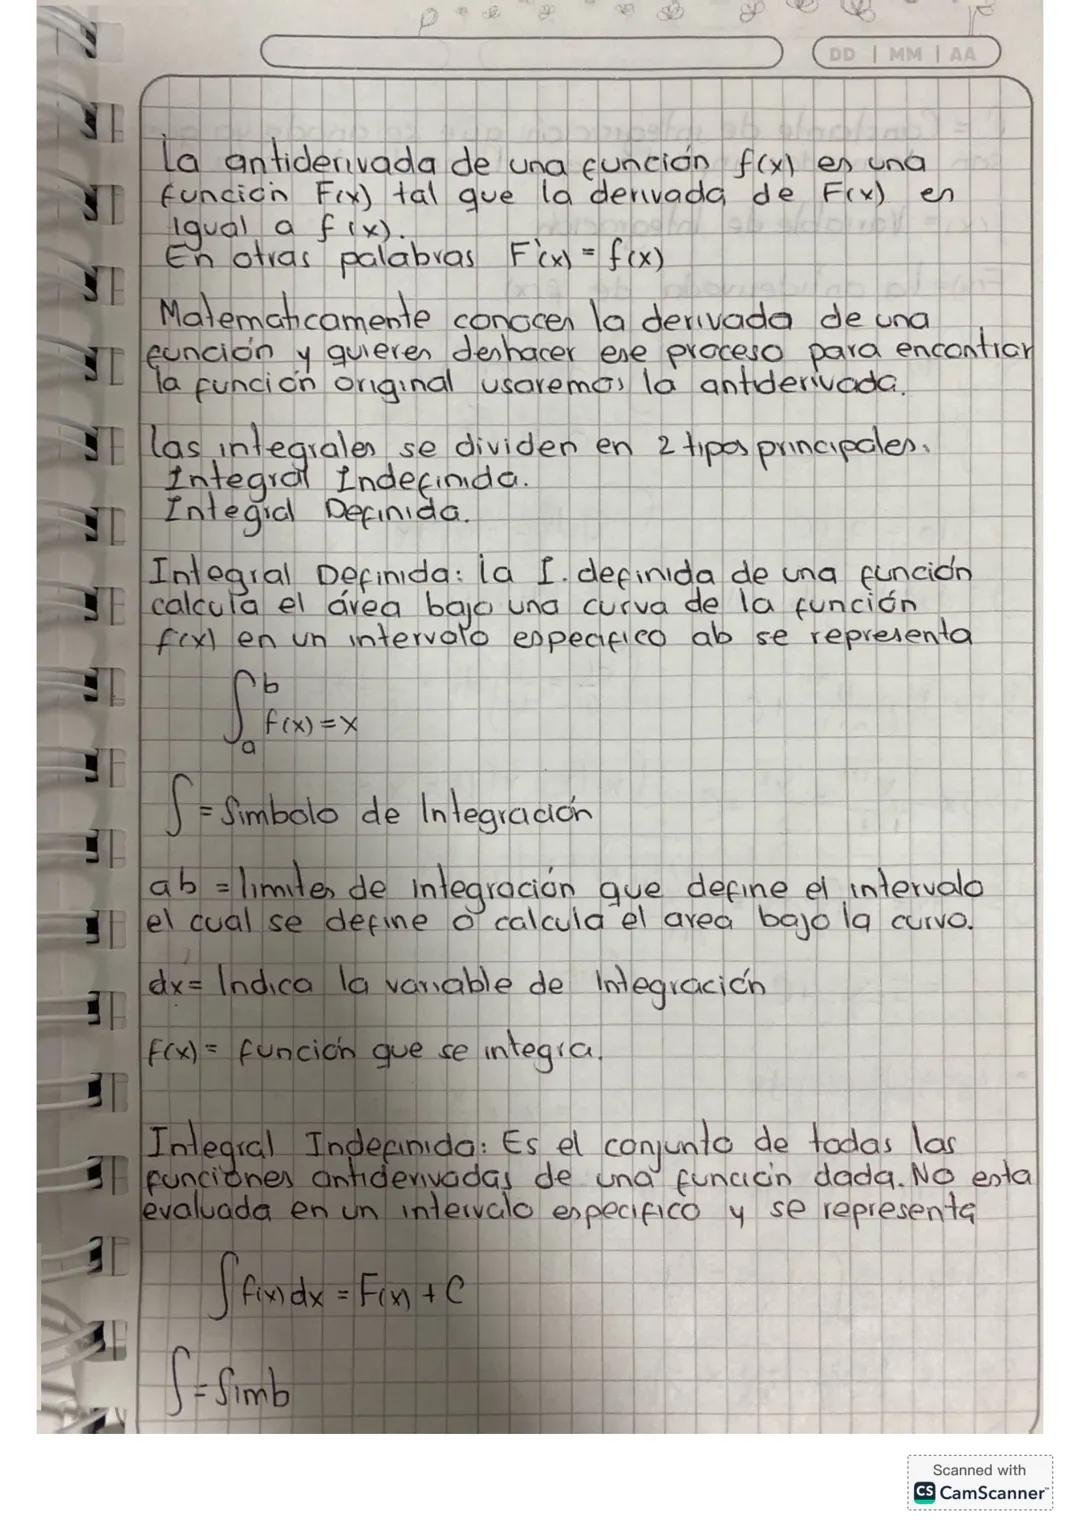 DD | MM | AA
La antiderivada de una función f(x) es una
función F(x) tal que la derivada de F(x) es
igual a f(x).
En otras palabras F'(x) = f(x)
Matematicamente conoces la derivada de una
función y quieres deshacer ese proceso para encontrar
la función original usaremos la antiderivada.
las integrales se dividen en 2 tipos principales.
Integral Indefinida.
Integral Definida.
Integral Definida: la I. definida de una función
calcula el área bajo una curva de la función
f(x) en un intervalo especifico ab se representa
∫ₐᵇ f(x)=x
∫ = Simbolo de Integración
ab = limites de integración que define el intervalo
el cual se define o calcula el area bajo la curva.
dx= Indica la variable de Integración
f(x)= función que se integra.
Integral Indefinida: Es el conjunto de todas las
funciones antiderivadas de una función dada. No esta
evaluada en un intervalo especifico y se representa
∫ f(x) dx = F(x) + C
∫ = Simb
Scanned with
CS CamScanner